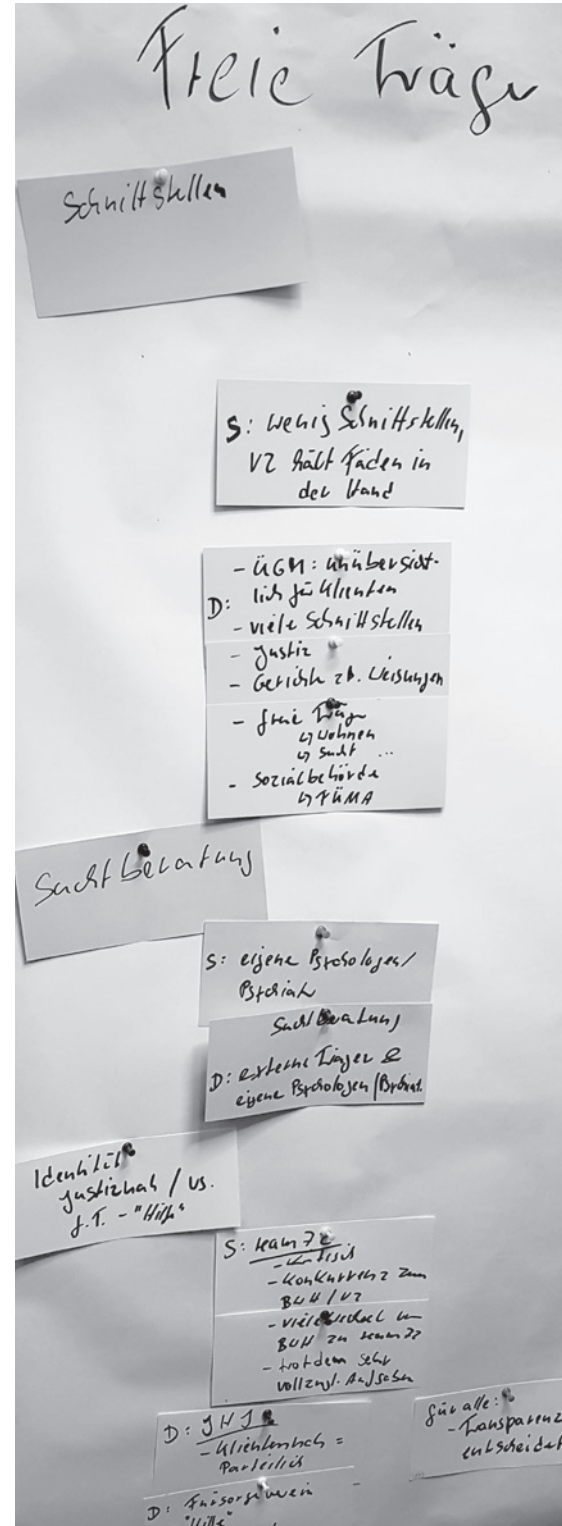 Freie Träger
Schnittstellen
S: wenig Schnittstellen,
VZ hält Fäden in
der Hand
- ÜGM: unübersicht-
D: lich für Klienten
- viele Schnittstellen
- Justiz
- Gerichte zb. Weisungen
- freie Träger
↳ Wohnen
↳ Sucht ...
- Sozialbehörde
↳ FÜMA
Suchtberatung
S: eigene Psychologen/
Psychiater
Suchtberatung
D: externe Träger &
eigene Psychologen/Psychiat.
Identität
justiznah / vs.
f.T. - "Hilfe"
S: team 72
- kritisch
- Konkurrenz zum
BWH / VZ
- viele Wechsel von
BWH zu team 72
- trotdem sehr
vollzugl. Aufgaben
D: JHJ
- Klientennah =
Parteilich
für alle:
- Transparenz
entscheidet
D: Fürsorgeverein
"Hilfe"